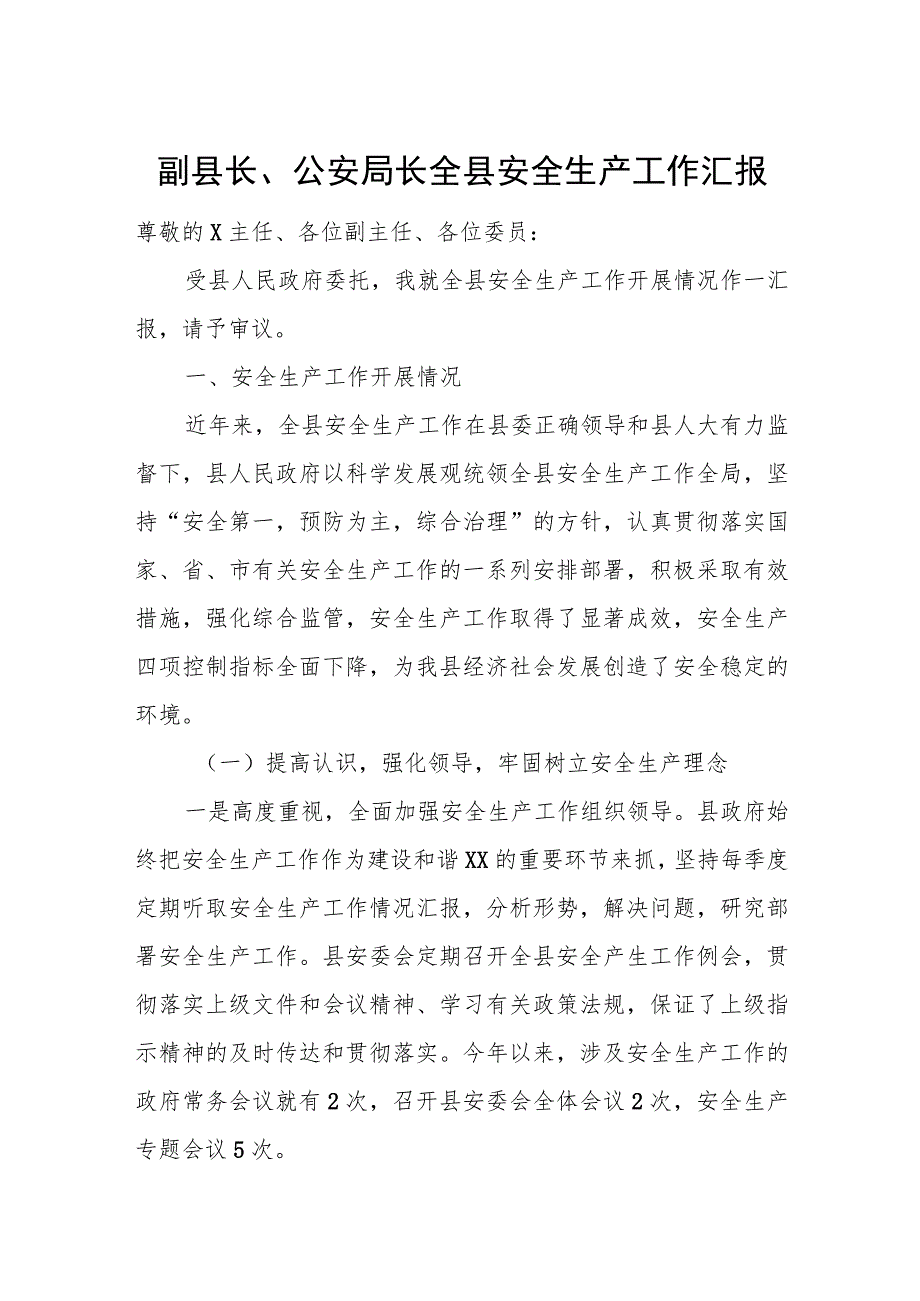 副县长、公安局长全县安全生产工作汇报
尊敬的X主任、各位副主任、各位委员：
受县人民政府委托，我就全县安全生产工作开展情况作一汇
报，请予审议。
一、安全生产工作开展情况
近年来，全县安全生产工作在县委正确领导和县人大有力监
督下，县人民政府以科学发展观统领全县安全生产工作全局，坚
持“安全第一，预防为主，综合治理”的方针，认真贯彻落实国
家、省、市有关安全生产工作的一系列安排部署，积极采取有效
措施，强化综合监管，安全生产工作取得了显著成效，安全生产
四项控制指标全面下降，为我县经济社会发展创造了安全稳定的
环境。
（一）提高认识，强化领导，牢固树立安全生产理念
一是高度重视，全面加强安全生产工作组织领导。县政府始
终把安全生产工作作为建设和谐XX的重要环节来抓，坚持每季度
定期听取安全生产工作情况汇报，分析形势，解决问题，研究部
署安全生产工作。县安委会定期召开全县安全产生工作例会，贯
彻落实上级文件和会议精神、学习有关政策法规，保证了上级指
示精神的及时传达和贯彻落实。今年以来，涉及安全生产工作的
政府常务会议就有2次，召开县安委会全体会议2次，安全生产
专题会议5次。